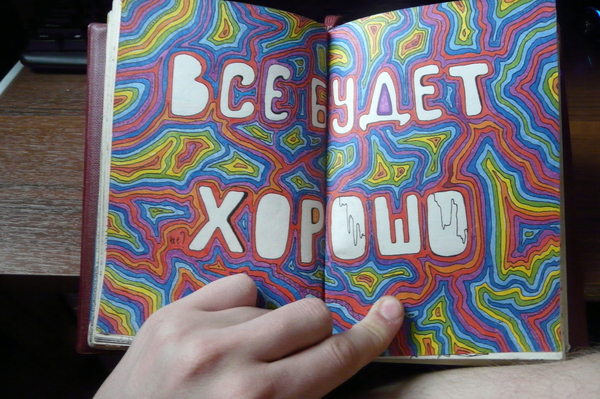 ВСЕ БУДЕТ
ХОРОШО